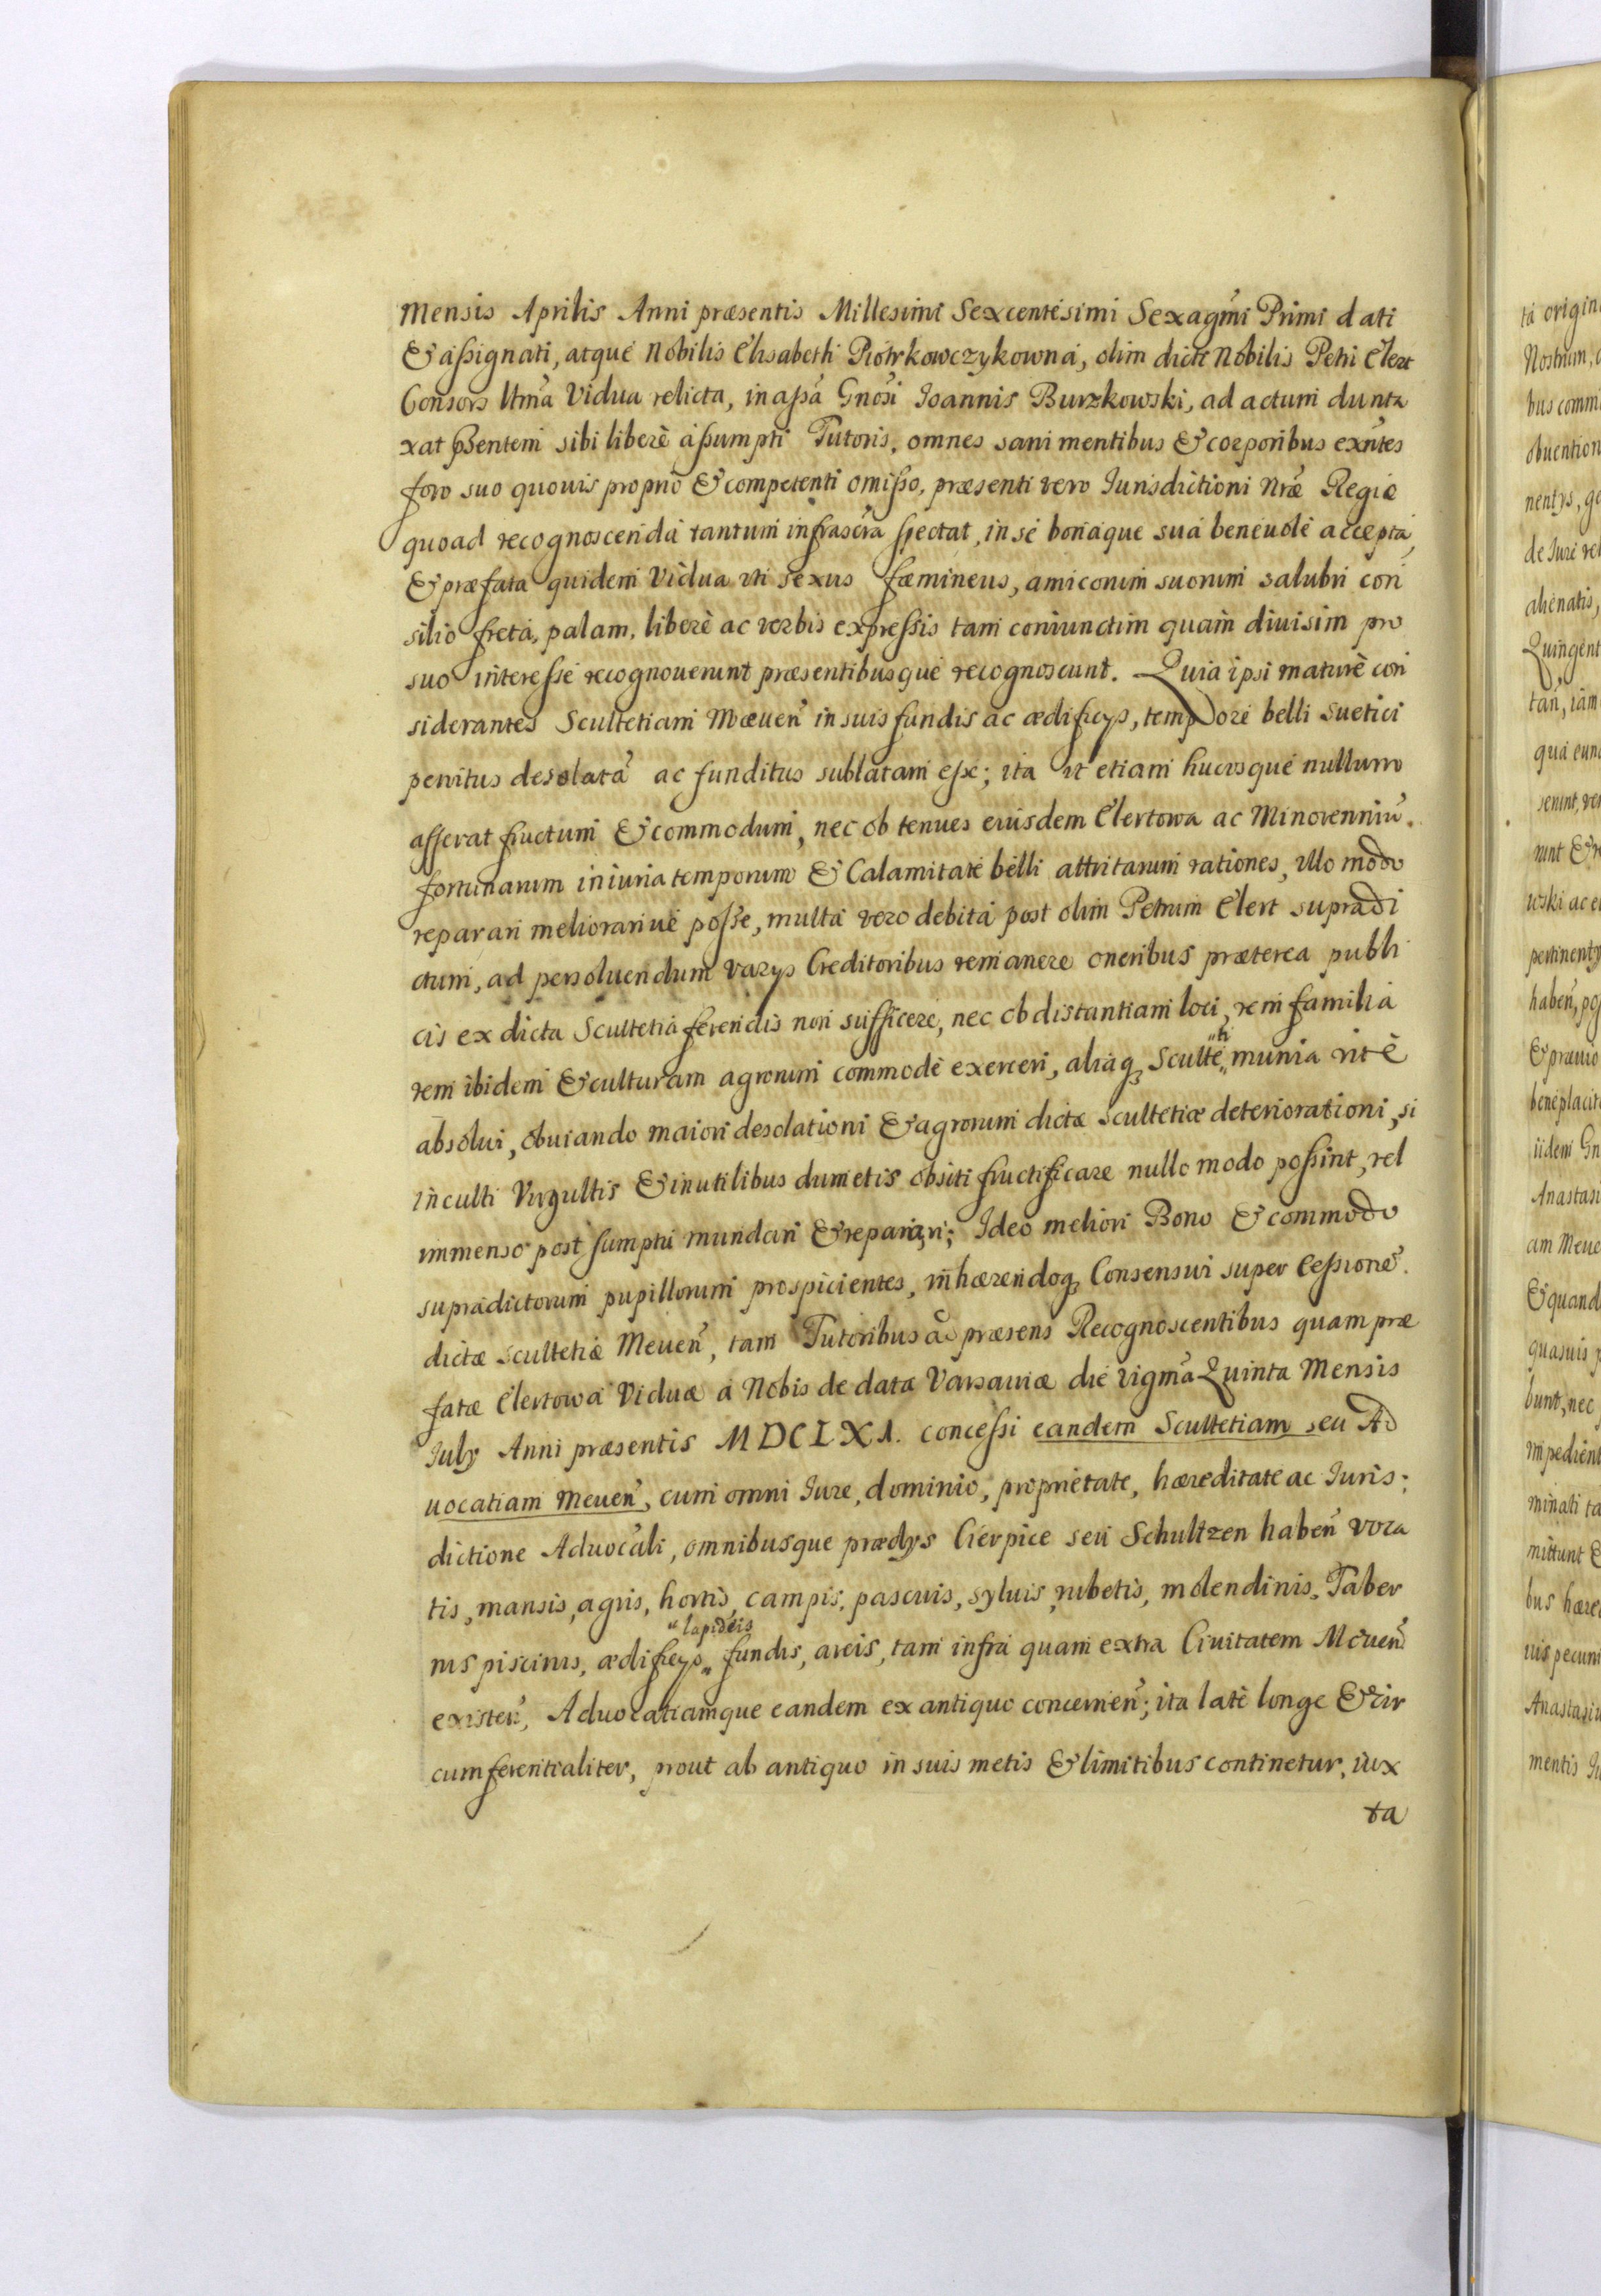 Mensis Aprilis Anni præsentis Millesimi Sexcentesimi Sexagm̃i Primi dati
& aßignati, atque Nobilis Elisabeth Piotrkowczykowna, olim dictê Nobilis Petri Elert
Consors Vltm̃a Vidua relicta, in aßã Gnosi Ioannis Burzkowski, ad actum dunta
xat pñsentem sibi liberè aßumpti Tutoris, omnes sani mentibus & corporibus exñtes
foro suo quouis proprio & competenti omißo, præsenti vero Iurisdictioni Nrẽ Regiæ
quoad recognoscenda tantum infrascra spectat, in se bonaque sua beneuolè accepta,
& præfata quidem Vidua uti sexus fœmineus, amicorum suorum salubri con
silio freta, palam, liberè ac verbis expreßis tam coniunctim quàm diuisim pro
suo intereße recognouerunt præsentibusque recognoscunt. Quia ipsi maturè con
siderantes Scultetiam Mæueñ in suis fundis ac ædificys, tempore belli suetici
penitus desolatã ac funditus sublatam eße; ita ut etiam hucusque nullum
afferat fructum & commodum, nec ob tenues eiusdem Elertowa ac Minorenniũ
fortunarum iniuria temporum & Calamitate belli attritarum rationes, vllo modo
reparari meliorariuè poße, multa vero debita post olim Petrum Elert supradi
ctum, ad persoluendum varys Creditoribus remanere oneribus præterea publi
cis ex dicta Scultetia ferendis non sufficere, nec ob distantiam loci, rem familia
rem ibidem & culturam agrorum commodè exerceri, aliaq; Sculteti munia ritè
absolui, obuiando maiori desolationi & agrorum dictæ Scultetiæ deteriorationi, si
inculti Virgultis & inutilibus dumetis obsiti fructificare nullo modo poßint, vel
immenso post sumptu mundari & reparari; Ideo meliori Bono & commodo
supradictorum pupillorum prospicientes, inhærendoq; Consensui super Ceßionẽ
dictæ Scultetiæ Meueñ, tam Tutoribus ad præsens Recognoscentibus quam præ
fatæ Elertowa Viduæ à Nobis de data Varsauiæ die vigm̃a Quinta Mensis
July Anni præsentis MDCLXI. conceßi eandem Scultetiam seu Ad
uocatiam Meueñ, cum omni Iure, dominio, proprietate, hæreditate ac Iuris:
dictione Aduocali, omnibusque prædys Cierpice seu Schultzen habeñ voca
tis, mansis, agris, hortis, campis, pascuis, syluis, rubetis, molendinis, Taber
nis piscinis, ædificys lapideis fundis, areis, tam infra quam extra Ciuitatem Meueñ
existeñ, Aduocatiamque eandem ex antiquo concerneñ; ita latè longe & cir
cumferentialiter, prout ab antiquo in suis metis & limitibus continetur, iux
ta